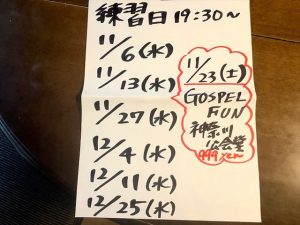 練習日 19:30～
11/6(水)
11/13(水)
11/27(水)
12/4(水)
12/11(水)
12/25(水)
11/23(土)
GOSPEL
FUN
神奈川
公会堂
999 yen